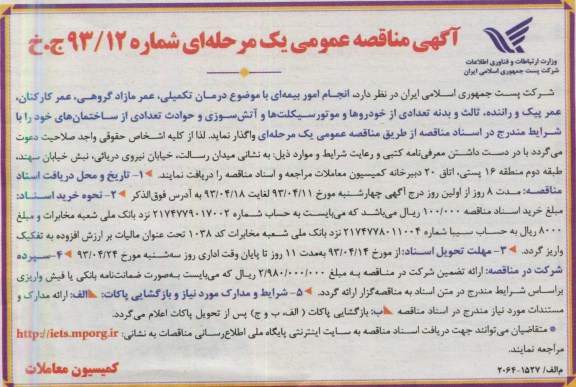 آگهی مناقصه عمومی یک مرحله‌ای شماره ۹۳/۱۲ج.خ
وزارت ارتباطات و فناوری اطلاعات
شرکت پست جمهوری اسلامی ایران
شرکت پست جمهوری اسلامی ایران در نظر دارد، انجام امور بیمه‌ای با موضوع درمان تکمیلی، عمر مازاد گروهی، عمر کارکنان،
عمر پیک و راننده، ثالث و بدنه تعدادی از خودروها و موتورسیکلت‌ها و آتش‌سوزی و حوادث تعدادی از ساختمان‌های خود را با
شرایط مندرج در اسناد مناقصه از طریق مناقصه عمومی یک مرحله‌ای واگذار نماید. لذا از کلیه اشخاص حقوقی واجد صلاحیت دعوت
می‌گردد با در دست داشتن معرفی‌نامه کتبی و رعایت شرایط و موارد ذیل: به نشانی میدان رسالت، خیابان نیروی دریائی، نبش خیابان سهند،
طبقه دوم منطقه ۱۶ پستی، اتاق ۲۰ دبیرخانه کمیسیون معاملات مراجعه و اسناد مناقصه را دریافت نمایند. ۱- تاریخ و محل دریافت اسناد
مناقصه: مدت ۸ روز از اولین روز درج آگهی چهارشنبه مورخ ۹۳/۰۴/۱۱ لغایت ۹۳/۰۴/۱۸ به آدرس فوق‌الذکر ۲- نحوه خرید اسناد:
مبلغ خرید اسناد مناقصه ۱۰۰/۰۰۰ ریال می‌باشد که می‌بایست به حساب شماره ۲۱۷۴۷۷۹۰۱۷۰۰۲ نزد بانک ملی شعبه مخابرات و مبلغ
۸۰۰۰ ریال به حساب سیبا شماره ۲۱۷۴۷۷۸۰۱۱۰۰۴ نزد بانک ملی شعبه مخابرات کد ۱۰۳۸ تحت عنوان مالیات بر ارزش افزوده به تفکیک
واریز گردد. ۳- مهلت تحویل اسناد: از مورخ ۹۳/۰۴/۱۴ به‌مدت ۱۱ روز تا پایان وقت اداری روز سه‌شنبه مورخ ۹۳/۰۴/۲۴ ۴- سپرده
شرکت در مناقصه: ارائه تضمین شرکت در مناقصه به مبلغ ۲/۹۸۰/۰۰۰/۰۰۰ ریال که می‌بایست به‌صورت ضمانت‌نامه بانکی یا فیش واریزی
براساس شرایط مندرج در متن اسناد به مناقصه‌گزار ارائه گردد. ۵- شرایط و مدارک مورد نیاز و بازگشایی پاکات: الف: ارائه مدارک و
مستندات مورد نیاز مندرج در اسناد مناقصه ب: بازگشایی پاکات (الف، ب و ج) پس از تحویل پاکات اعلام می‌گردد.
* متقاضیان می‌توانند جهت دریافت اسناد مناقصه به سایت اینترنتی پایگاه ملی اطلاع‌رسانی مناقصات به نشانی: http://iets.mporg.ir
مراجعه نمایند.
م‌الف/ ۱۵۲۷-۲۰۶۴
کمیسیون معاملات